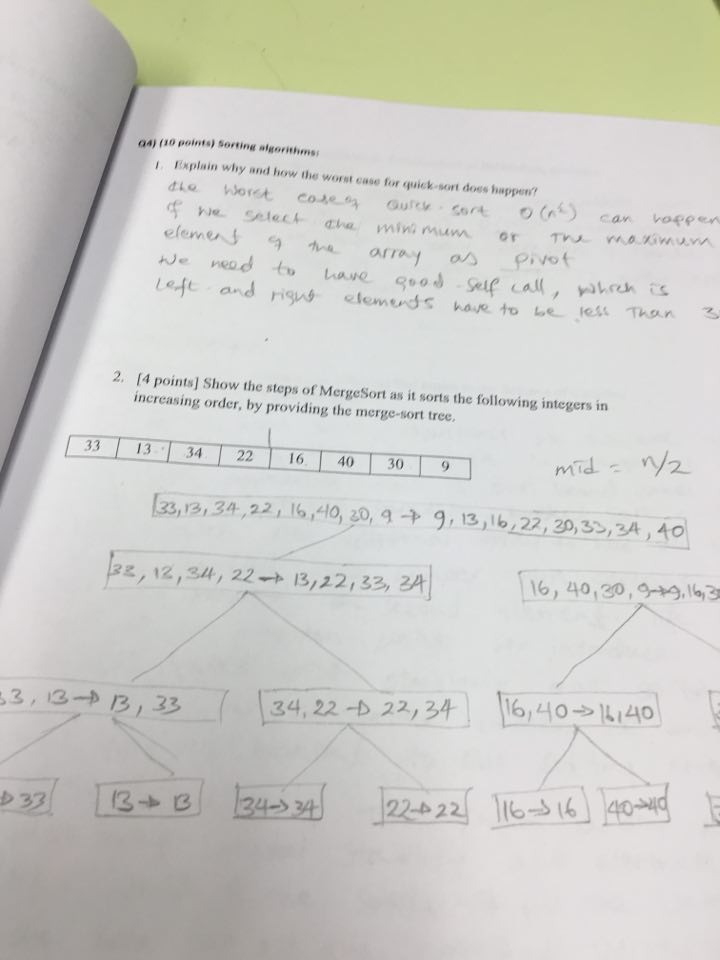 Q4) (10 points) Sorting algorithms:
1. Explain why and how the worst case for quick-sort does happen?
the worst case of Quick-sort O(n²) can happen
if we select the minimum or the maximum
element of the array as pivot
We need to have good self call, which is
Left and right elements have to be less Than 3
2. [4 points] Show the steps of MergeSort as it sorts the following integers in
increasing order, by providing the merge-sort tree.
33 13 34 22 16 40 30 9
mid = n/2
33,13,34,22,16,40,30,9 → 9,13,16,22,30,33,34,40
33,13,34,22 → 13,22,33,34 16,40,30,9→9,16,3
33,13 → 13,33 34,22 → 22,34 16,40→16,40
→33 13→13 34→34 22→22 16→16 40→40